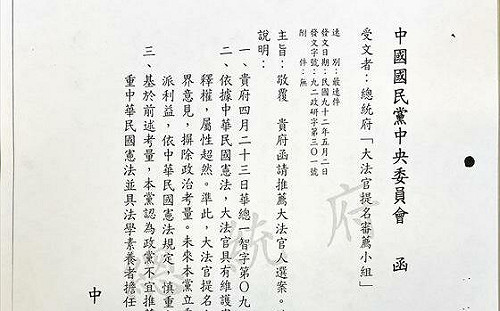 中國國民黨中央委員會 函
受文者：總統府「大法官提名審薦小組」
速別：最速件
發文日期：民國九十二年五月二日
發文字號：九二政研字第三〇一號
附件：無
主旨：敬覆 貴府函請推薦大法官人選案。
說明：
一、貴府四月二十三日華總一智字第〇九
二、依據中華民國憲法，大法官具有維護憲
釋權，屬性超然。準此，大法官提名
界意見，摒除政治考量。未來本黨立委
派利益，依中華民國憲法規定，慎重
三、基於前述考量，本黨認為政黨不宜推薦
重中華民國憲法並具法學素養者擔任
中
總統府